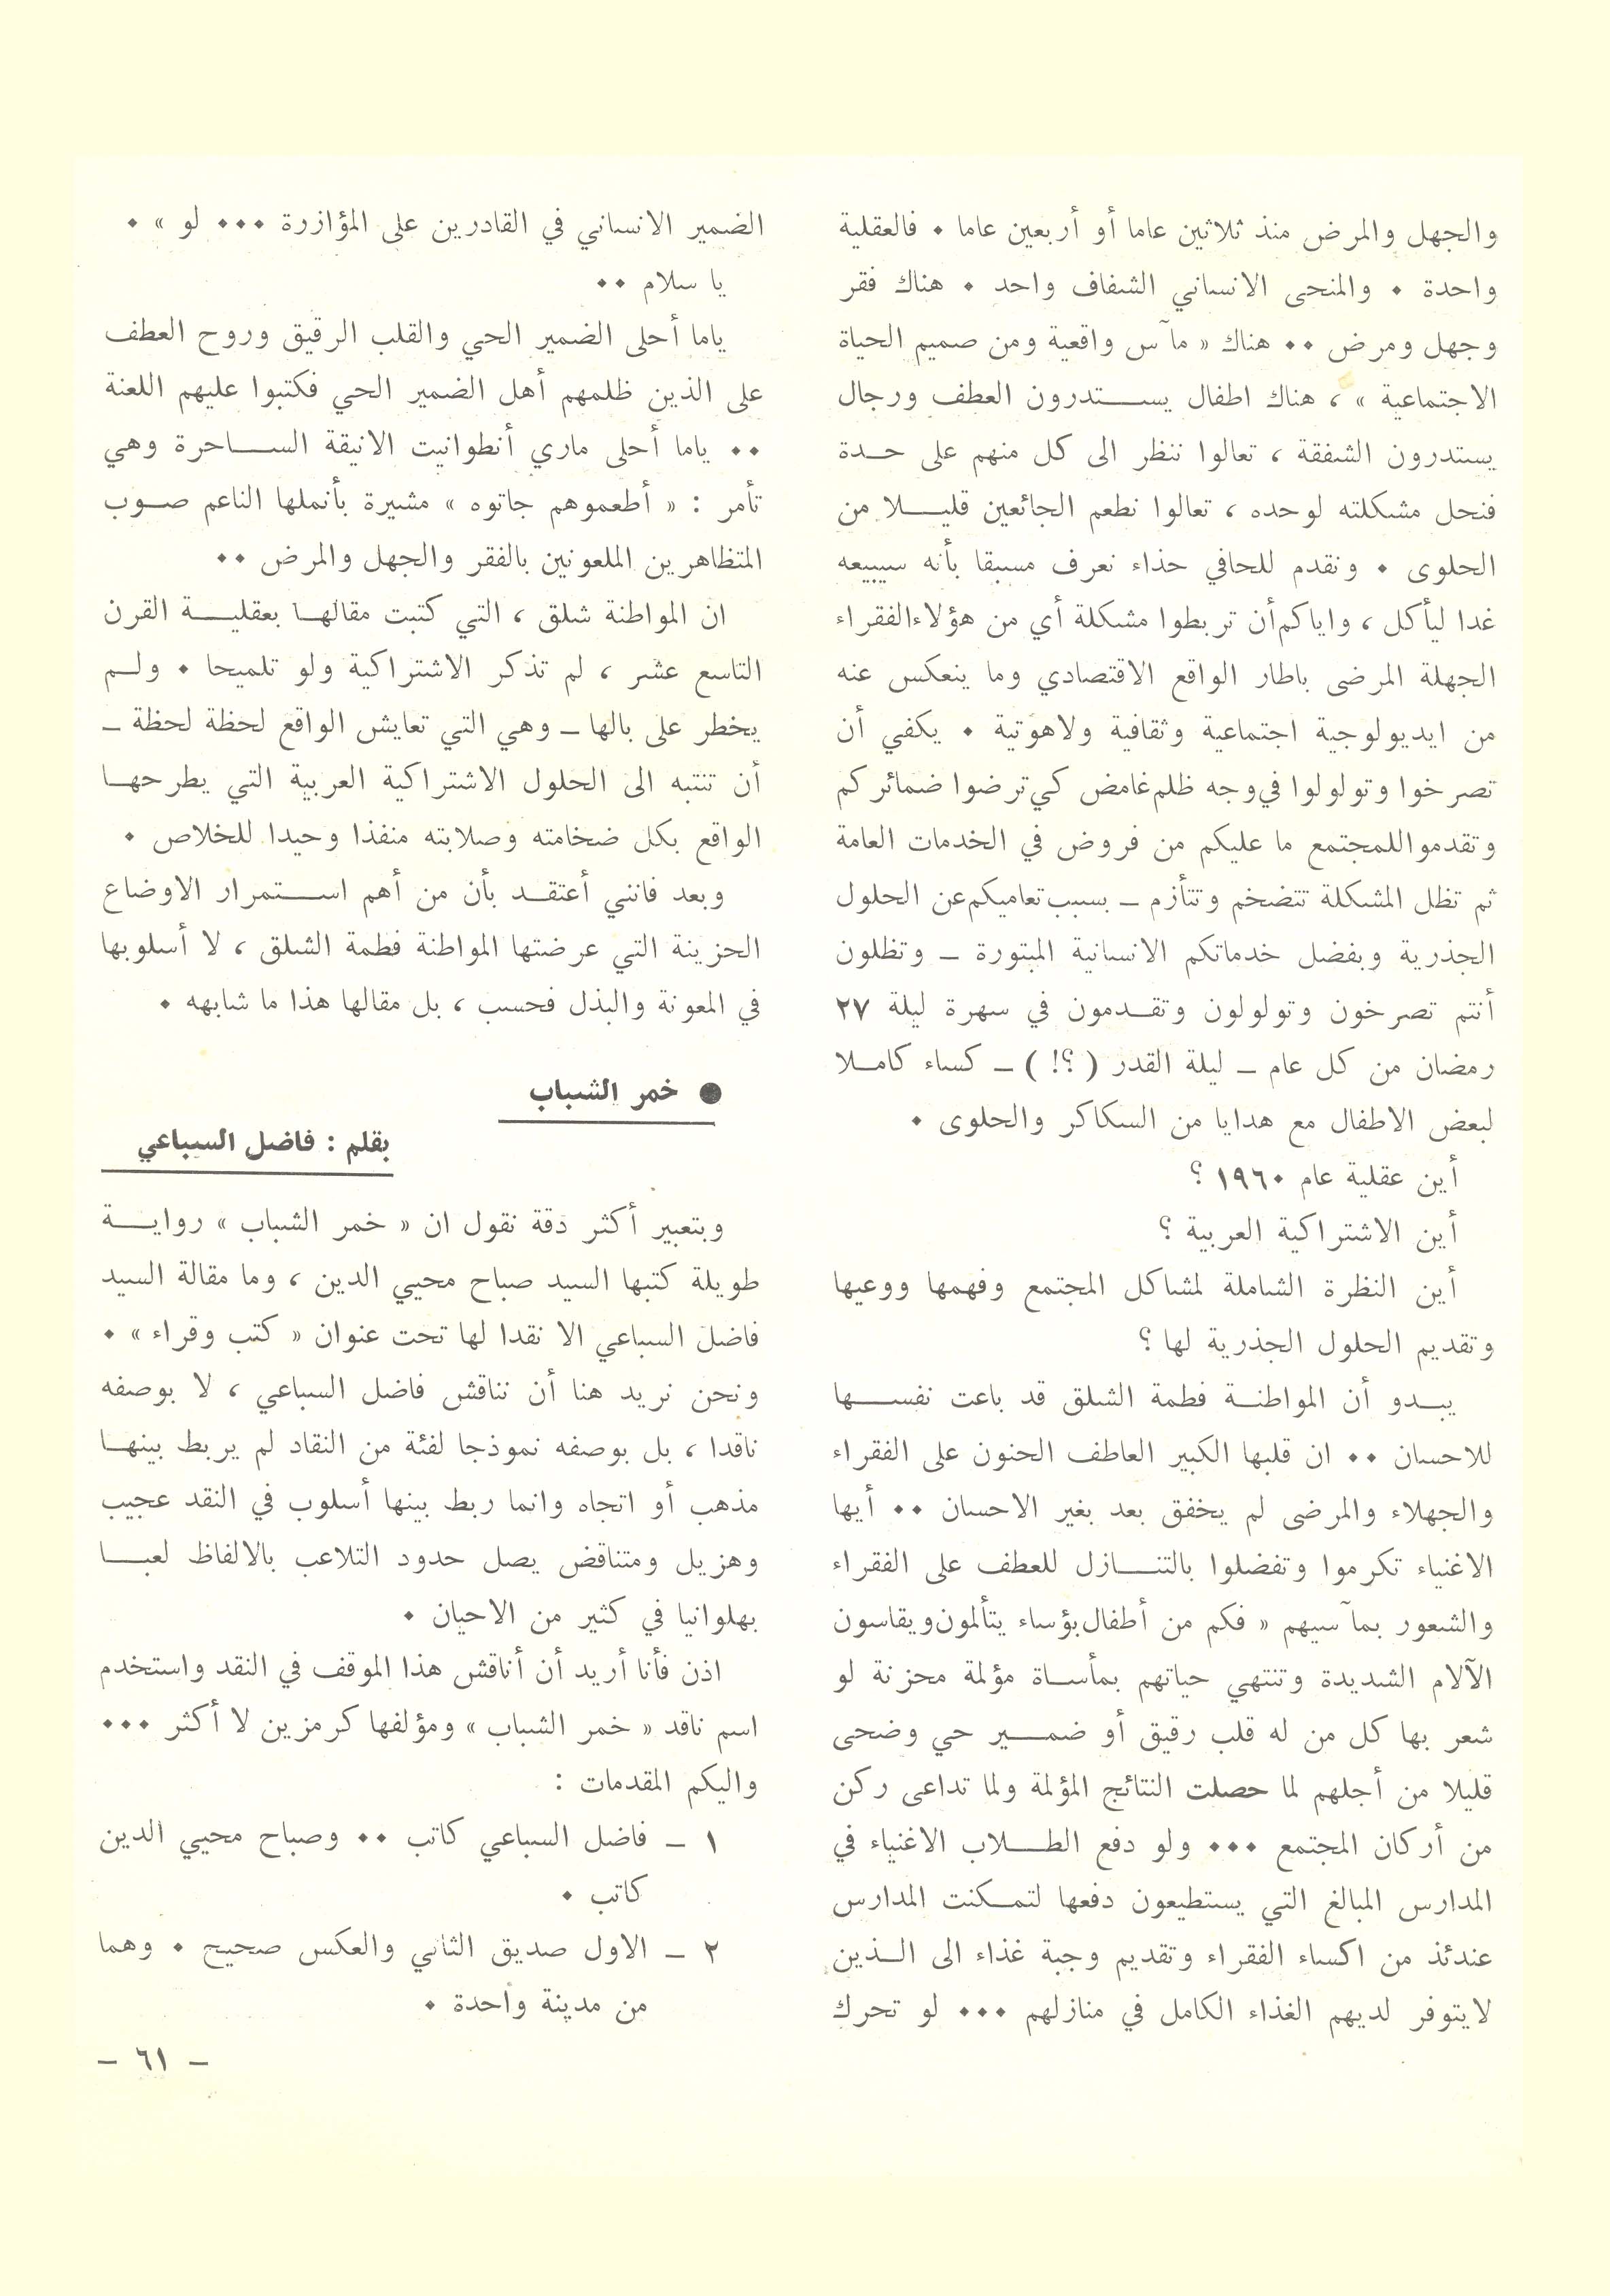 والجهل والمرض منذ ثلاثين عاما أو أربعين عاما ٠ فالعقلية
واحدة ٠ والمنحى الانساني الشفاف واحد ٠ هناك فقر
وجهل ومرض ٠٠ هناك « مآس واقعية ومن صميم الحياة
الاجتماعية » ، هناك اطفال يستدرون العطف ورجال
يستدرون الشفقة ، تعالوا ننظر الى كل منهم على حدة
فنحل مشكلته لوحده ، تعالوا نطعم الجائعين قليلا من
الحلوى ٠ ونقدم للحافي حذاء نعرف مسبقا بأنه سيبيعه
غدا ليأكل ، واياكم أن تربطوا مشكلة أي من هؤلاء الفقراء
الجهلة المرضى باطار الواقع الاقتصادي وما ينعكس عنه
من ايديولوجية اجتماعية وثقافية ولاهوتية ٠ يكفي أن
تصرخوا وتولولوا في وجه ظلم غامض كي ترضوا ضمائركم
وتقدموا للمجتمع ما عليكم من فروض في الخدمات العامة
ثم تظل المشكلة تتضخم وتتأزم ــ بسبب تعاميكم عن الحلول
الجذرية وبفضل خدماتكم الانسانية المبتورة ــ وتظلون
أنتم تصرخون وتولولون وتقدمون في سهرة ليلة ٢٧
رمضان من كل عام ــ ليلة القدر ( ؟! ) ــ كساء كاملا
لبعض الاطفال مع هدايا من السكاكر والحلوى ٠
أين عقلية عام ١٩٦٠ ؟
أين الاشتراكية العربية ؟
أين النظرة الشاملة لمشاكل المجتمع وفهمها ووعيها
وتقديم الحلول الجذرية لها ؟
يبدو أن المواطنة فطمة الشلق قد باعت نفسها
للاحسان ٠٠ ان قلبها الكبير العاطف الحنون على الفقراء
والجهلاء والمرضى لم يخفق بعد بغير الاحسان ٠٠ أيها
الاغنياء تكرموا وتفضلوا بالتنازل للعطف على الفقراء
والشعور بمآسيهم « فكم من أطفال بؤساء يتألمون ويقاسون
الآلام الشديدة وتنتهي حياتهم بمأساة مؤلمة محزنة لو
شعر بها كل من له قلب رقيق أو ضمير حي وضحى
قليلا من أجلهم لما حصلت النتائج المؤلمة ولما تداعى ركن
من أركان المجتمع ٠٠٠ ولو دفع الطلاب الاغنياء في
المدارس المبالغ التي يستطيعون دفعها لتمكنت المدارس
عندئذ من اكساء الفقراء وتقديم وجبة غذاء الى الذين
لايتوفر لديهم الغذاء الكامل في منازلهم ٠٠٠ لو تحرك
الضمير الانساني في القادرين على المؤازرة ٠٠٠ لو » ٠
يا سلام ٠٠
ياما أحلى الضمير الحي والقلب الرقيق وروح العطف
على الذين ظلمهم أهل الضمير الحي فكتبوا عليهم اللعنة
٠٠ ياما أحلى ماري أنطوانيت الانيقة الساحرة وهي
تأمر : « أطعموهم جاتوه » مشيرة بأنملها الناعم صوب
المتظاهرين الملعونين بالفقر والجهل والمرض ٠٠
ان المواطنة شلق ، التي كتبت مقالها بعقلية القرن
التاسع عشر ، لم تذكر الاشتراكية ولو تلميحا ٠ ولم
يخطر على بالها ــ وهي التي تعايش الواقع لحظة لحظة ــ
أن تنتبه الى الحلول الاشتراكية العربية التي يطرحها
الواقع بكل ضخامته وصلابته منفذا وحيدا للخلاص ٠
وبعد فانني أعتقد بأن من أهم استمرار الاوضاع
الحزينة التي عرضتها المواطنة فطمة الشلق ، لا أسلوبها
في المعونة والبذل فحسب ، بل مقالها هذا ما شابهه ٠
● خمر الشباب
بقلم : فاضل السباعي
وبتعبير أكثر دقة نقول ان « خمر الشباب » رواية
طويلة كتبها السيد صباح محيي الدين ، وما مقالة السيد
فاضل السباعي الا نقدا لها تحت عنوان « كتب وقراء » ٠
ونحن نريد هنا أن نناقش فاضل السباعي ، لا بوصفه
ناقدا ، بل بوصفه نموذجا لفئة من النقاد لم يربط بينها
مذهب أو اتجاه وانما ربط بينها أسلوب في النقد عجيب
وهزيل ومتناقض يصل حدود التلاعب بالالفاظ لعبا
بهلوانيا في كثير من الاحيان ٠
اذن فأنا أريد أن أناقش هذا الموقف في النقد واستخدم
اسم ناقد « خمر الشباب » ومؤلفها كرمزين لا أكثر ٠٠٠
واليكم المقدمات :
١ ــ فاضل السباعي كاتب ٠٠ وصباح محيي الدين
كاتب ٠
٢ ــ الاول صديق الثاني والعكس صحيح ٠ وهما
من مدينة واحدة ٠
ــ ٦١ ــ